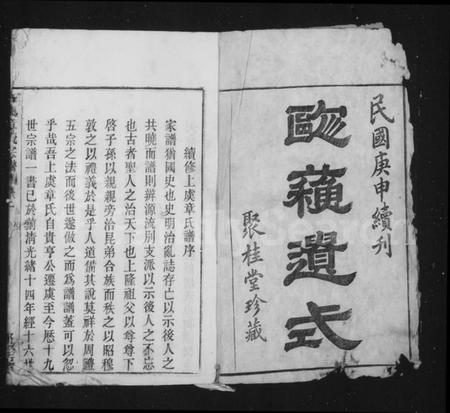 民國庚申續刊
歐蘓遺式
聚桂堂珍藏
續修上虞章氏譜序
家譜猶國史也史明治亂誌存亡以示後人之
共曉而譜則辨源流別支派以示後人之不忘
也古者聖人之治天下也上隆祖父以尊尊下
啓子孫以親親旁治昆弟合族而秩之以昭穆
敦之以禮義於是乎人道備其說莫祥於周禮
五宗之法而後世遂倣之而為譜譜蓋可以忽
乎哉吾上虞章氏自貴亨公遷虞至今歷十九
世宗譜一書已於前清光緒十四年經十六世